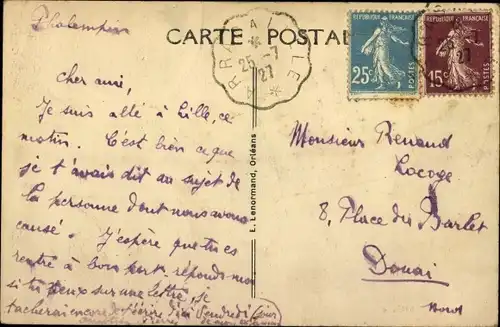 Phalempin
CARTE POSTALE
ARRAS A LILLE
25-7
27
RÉPUBLIQUE FRANÇAISE
25c
POSTES
RÉPUBLIQUE FRANÇAISE
15c
POSTES
Cher ami,
Je suis allé à Lille, ce
matin. C'est bien ce que
je t'avais dit au sujet de
la personne dont nous avons
causé. J'espère que tu es
rentré à bon port, réponds-moi
si tu peux sur une lettre, je
tacherai encore de t'écrire d'ici Vendredi
E. Lenormand, Orléans
Monsieur Renaud
Lacoge
8, Place du Barlet
Douai
Nord